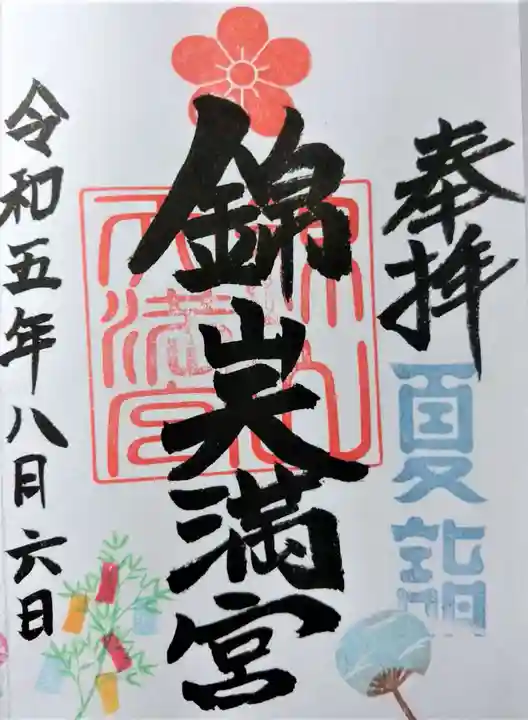 奉拝
夏詣
錦山天満宮
令和五年八月六日